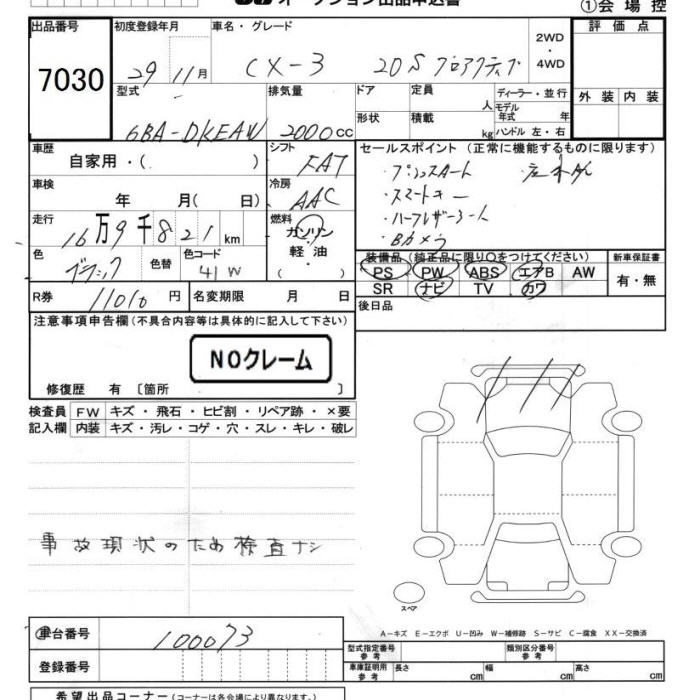 オークション出品申込書
①会場控
出品番号
7030
初度登録年月
29 11月
車名・グレード
CX-3 20S プロアクティブ
2WD
・
4WD
評価点
外装 内装
型式
6BA-DKEAW
排気量
2000cc
ドア
定員
人
形状
積載
kg
ディーラー・並行
モデル
年式 年
ハンドル 左・右
車歴
自家用・( )
シフト
FAT
車検
年 月( 日)
冷房
AAC
走行
16万9千821km
燃料
ガソリン
軽油
( )
色
ブラック
色替
色コード
41W
R券
11010円
名変期限 月 日
セールスポイント (正常に機能するものに限ります)
・プッシュスタート
・スマートキー
・ハーフレザーシート
・Bカメラ
装備品 (純正品に限り〇をつけてください)
PS PW ABS エアB AW
SR ナビ TV カワ
新車保証書
有・無
後日品
注意事項申告欄(不具合内容等は具体的に記入して下さい)
NOクレーム
修復歴 有 〔箇所 〕
検査員
記入欄
FW キズ・飛石・ヒビ割・リペア跡・×要
内装 キズ・汚レ・コゲ・穴・スレ・キレ・破レ
事故現状のため検査ナシ
スペア
A-キズ E-エクボ U-凹み W-補修跡 S-サビ C-腐食 XX-交換済
車台番号
100073
登録番号
型式指定番号
参考
類別区分番号
参考
車庫証明用
参考
長さ cm 幅 cm 高さ cm
希望出品コーナー(コーナーは各会場により異なります。)